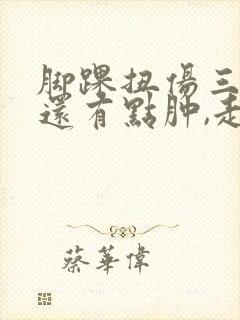 腳踝扭傷三
還有點肿,走
蔡華偉